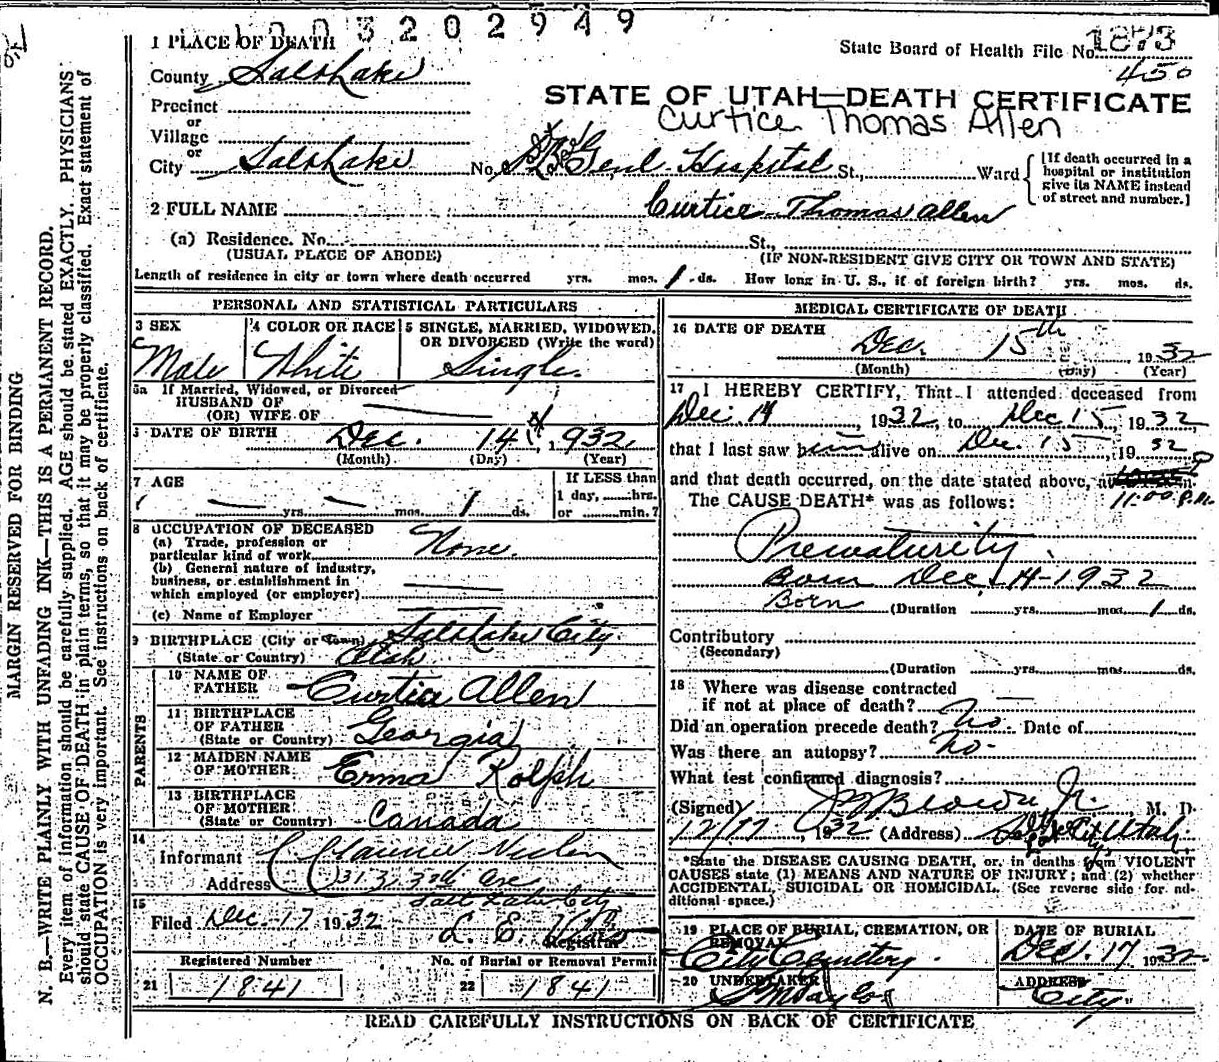 1003202949
1 PLACE OF DEATH
State Board of Health File No. 1873
450
County Salt Lake
STATE OF UTAH—DEATH CERTIFICATE
Precinct
or
Curtice Thomas Allen
Village
or
City Salt Lake No. Genl Hospital St., Ward
[If death occurred in a hospital or institution give its NAME instead of street and number.]
2 FULL NAME Curtice Thomas Allen
(a) Residence. No. St.,
(USUAL PLACE OF ABODE) (IF NON-RESIDENT GIVE CITY OR TOWN AND STATE)
Length of residence in city or town where death occurred yrs. mos. 1 ds. How long in U. S., if of foreign birth? yrs. mos. ds.
PERSONAL AND STATISTICAL PARTICULARS
3 SEX 4 COLOR OR RACE 5 SINGLE, MARRIED, WIDOWED,
OR DIVORCED (Write the word)
Male White Single
5a If Married, Widowed, or Divorced
HUSBAND OF
(OR) WIFE OF
6 DATE OF BIRTH Dec. 14 1932
(Month) (Day) (Year)
7 AGE If LESS than
1 day, hrs.
yrs. mos. 1 ds. or min.?
8 OCCUPATION OF DECEASED
(a) Trade, profession or
particular kind of work None.
(b) General nature of industry,
business, or establishment in
which employed (or employer)
(c) Name of Employer
9 BIRTHPLACE (City or Town) Salt Lake City.
(State or Country) Utah
PARENTS
10 NAME OF
FATHER Curtice Allen
11 BIRTHPLACE
OF FATHER
(State or Country) Georgia
12 MAIDEN NAME
OF MOTHER Erma Rolph
13 BIRTHPLACE
OF MOTHER
(State or Country) Canada
14
Informant
Address 313 3rd Ave
Salt Lake City
15
Filed Dec. 17 1932 L. E.
Registrar
Registered Number No. of Burial or Removal Permit
21 1841 22 1841
MEDICAL CERTIFICATE OF DEATH
16 DATE OF DEATH
Dec. 15th 1932
(Month) (Day) (Year)
17 I HEREBY CERTIFY, That I attended deceased from
Dec. 14, 1932, to Dec 15, 1932,
that I last saw him alive on Dec. 15, 1932
and that death occurred, on the date stated above, at
11:00 P.m.
The CAUSE DEATH* was as follows:
Prematurity.
Born Dec. 14-1932
Born (Duration yrs. mos. 1 ds.
Contributory
(Secondary)
(Duration yrs. mos. ds.
18 Where was disease contracted
if not at place of death?
Did an operation precede death? No. Date of
Was there an autopsy? No.
What test confirmed diagnosis?
(Signed) Brown Jr. M. D.
12/17, 1932 (Address) City, Utah.
*State the DISEASE CAUSING DEATH, or, in deaths from VIOLENT
CAUSES state (1) MEANS AND NATURE OF INJURY; and (2) whether
ACCIDENTAL, SUICIDAL OR HOMICIDAL. (See reverse side for additional space.)
19 PLACE OF BURIAL, CREMATION, OR
REMOVAL
City Cemetery.
DATE OF BURIAL
Dec. 17 1932
20 UNDERTAKER
Taylor
ADDRESS
City
READ CAREFULLY INSTRUCTIONS ON BACK OF CERTIFICATE
MARGIN RESERVED FOR BINDING
N. B.—WRITE PLAINLY WITH UNFADING INK—THIS IS A PERMANENT RECORD.
Every item of information should be carefully supplied. AGE should be stated EXACTLY. PHYSICIANS
should state CAUSE OF DEATH in plain terms, so that it may be properly classified. Exact statement of
OCCUPATION is very important. See instructions on back of certificate.